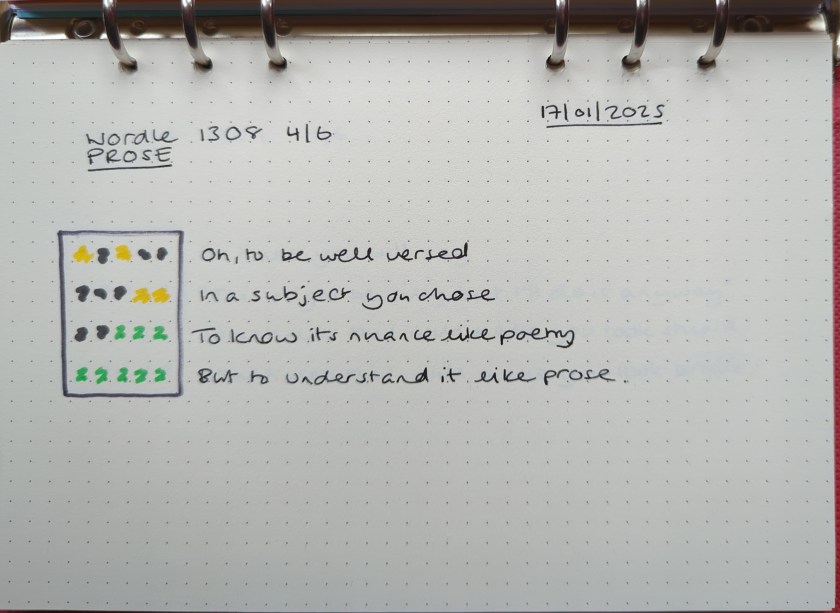 17/01/2025
Wordle 1308 4/6
PROSE
Oh, to be well versed
In a subject you chose
To know its nuance like poetry
But to understand it like prose.